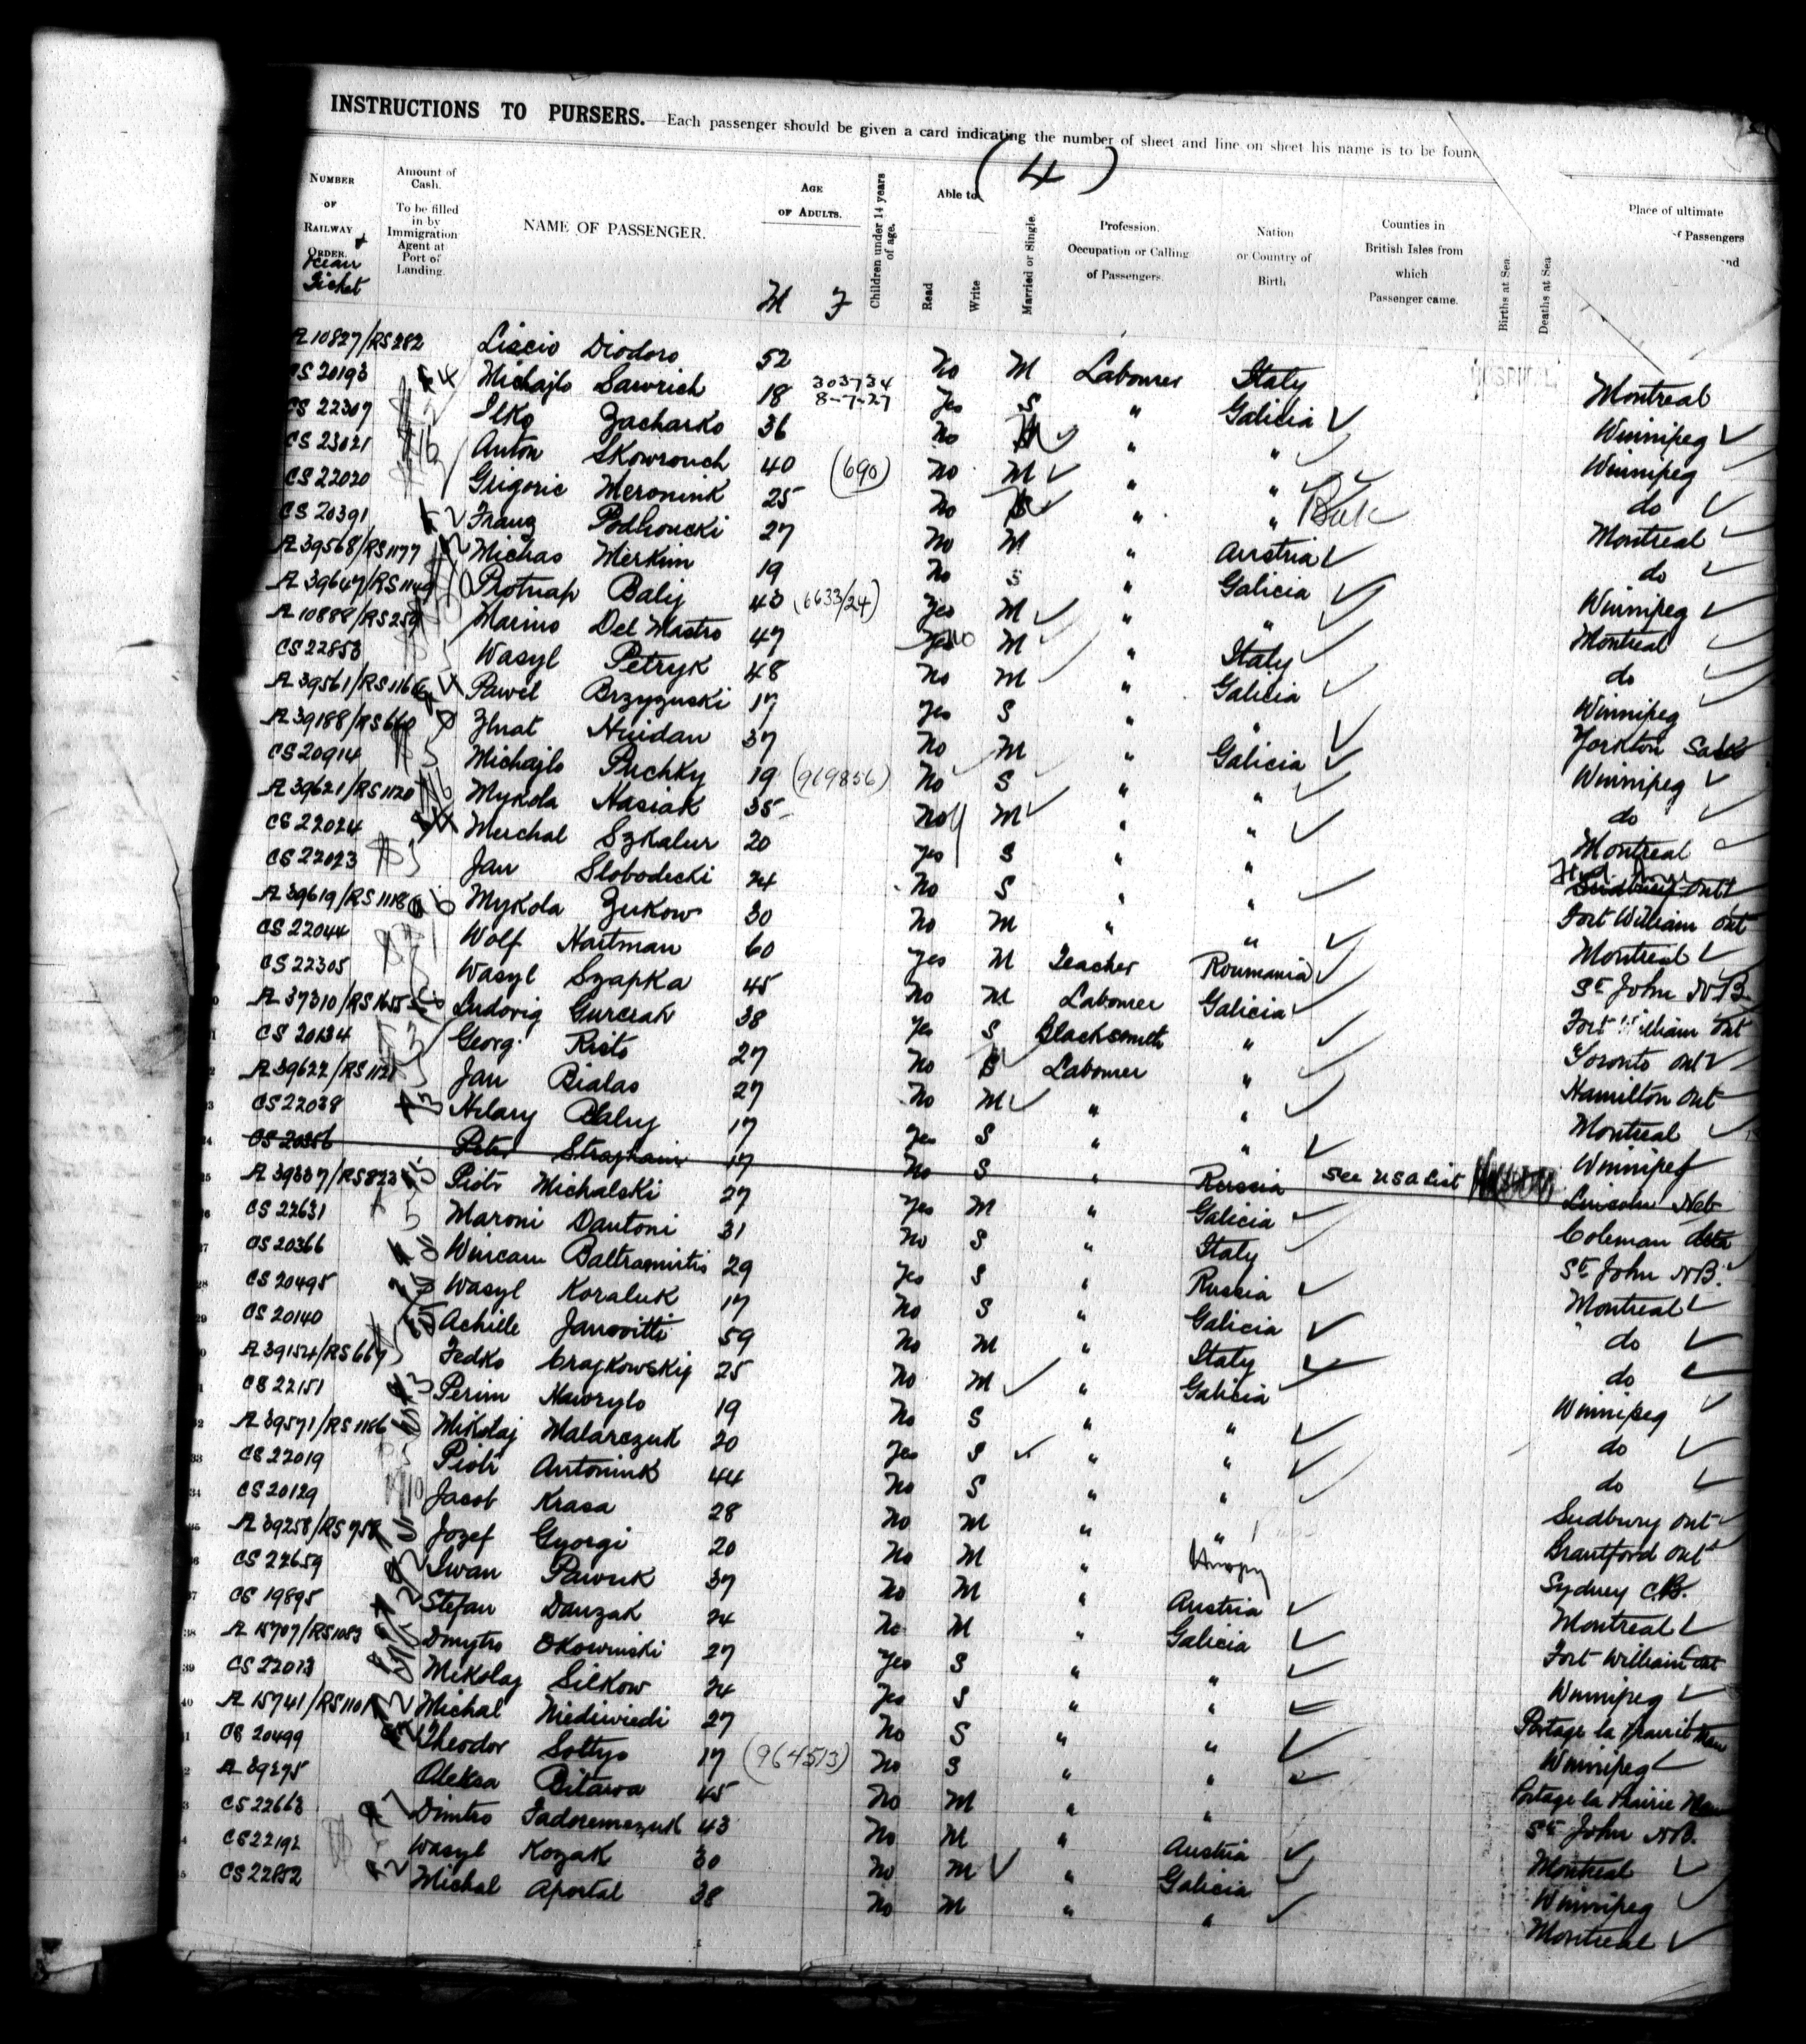 INSTRUCTIONS TO PURSERS.—Each passenger should be given a card indicating the number of sheet and line on sheet his name is to be found
(4)
NUMBER OF RAILWAY ORDER. & Ocean Ticket
Amount of Cash. To be filled in by Immigration Agent at Port of Landing.
NAME OF PASSENGER.
AGE OF ADULTS. M F
Children under 14 years of age.
Able to Read Write
Married or Single.
Profession. Occupation or Calling of Passengers.
Nation or Country of Birth
Counties in British Isles from which Passenger came.
Births at Sea.
Deaths at Sea
Place of ultimate
f Passengers
nd
A 10827/RS 282 Liscio Diodoro 52 No M Labourer Italy Montreal
CS 20193 Michajlo Sawrich 18 303734 8-7-27 Yes S " Galicia Winnipeg
CS 22307 Ilko Zacharko 36 No M " " Winnipeg
CS 23021 Anton Skowronch 40 (690) No M " " do
CS 22020 Grigorie Meronink 25 No S " " Montreal
CS 20391 Franz Podhoucki 27 No M " Austria do
A 39568/RS 1177 Michas Merkim 19 No S " Galicia Winnipeg
A 39647/RS 1149 Protnap Balij 43 (6633/24) Yes M " " Montreal
A 10888/RS 259 Marino Del Mastro 47 Yes No M " Italy do
CS 22853 Wasyl Petryk 48 No M " Galicia Winnipeg
A 39561/RS 1166 Pawel Brzyzuski 17 Yes S " " Yorkton Sask
A 39188/RS 660 Huidan 37 No M " Galicia Winnipeg
CS 20914 Michajlo Puchky 19 (969856) No S " " do
A 39621/RS 1120 Mykola Nasiak 35 No M " " Montreal
CS 22024 Merchal Szkalur 20 Yes S " " Sudbury Ont
CS 22023 Jan Slobodecki 24 No S " " Fort William Ont
A 39619/RS 1118 Mykola Zukow 30 No M " " Montreal
CS 22044 Wolf Hartman 60 Yes M Teacher Roumania St John N.B.
CS 22305 Wasyl Szapka 45 No M Labourer Galicia Fort William Ont
A 37310/RS 1655 Ludovig Gurcrak 38 Yes S Blacksmith " Toronto Ont
CS 20134 Georg Risto 27 No Labourer " Hamilton Ont
A 39622/RS 1121 Jan Bialas 27 No M " " Montreal
CS 22038 Hilary 17 Yes S " " Winnipeg
CS 20356 Peter 17 No S " Russia See USA List Lincoln Neb
A 39337/RS 823 Piotr Michalski 27 Yes M " Galicia Coleman Alta
CS 22631 Maroni Dantoni 31 No S " Italy St John N.B.
CS 20366 Wincan Baltramutis 29 Yes S " Russia Montreal
CS 20495 Wasyl Koraluk 17 No S " Galicia do
CS 20140 Achille Janovitti 59 No M " Italy do
A 39154/RS 667 Fedko Crajkowskij 25 No M " Galicia Winnipeg
CS 22151 Perim Hawrylo 19 No S " " do
A 39571/RS 1186 Mikolaj Malarczuk 20 Yes S " " do
CS 22019 Piotr Antonink 44 No S " " Sudbury Ont
CS 20129 Jacob Krasa 28 No M " " Brantford Ont
A 39258/RS 758 Jozef Gyorgi 20 No M " Sydney C.B.
CS 22659 Iwan Pawuk 37 No M " Austria Montreal
CS 19895 Stefan Danzak 24 No M " Galicia Fort William Ont
A 15707/RS 1083 Dmytro Okowinski 27 Yes S " " Winnipeg
CS 22013 Mikolaj Silkow 24 Yes S " " Portage la Prairie Man
A 15741/RS 1101 Michal Niedzwiedi 27 No S " " Winnipeg
CS 20499 Theodor Soltys 17 (964513) No S " " Portage la Prairie Man
A 39275 Oleksa Bitawa 45 No M " " St John N.B.
CS 22663 Dimtro Fadoremezuk 43 No M " Austria Montreal
CS 22192 Wasyl Kozak 30 No M " Galicia Winnipeg
CS 22852 Michal Aportal 38 No M " " Montreal